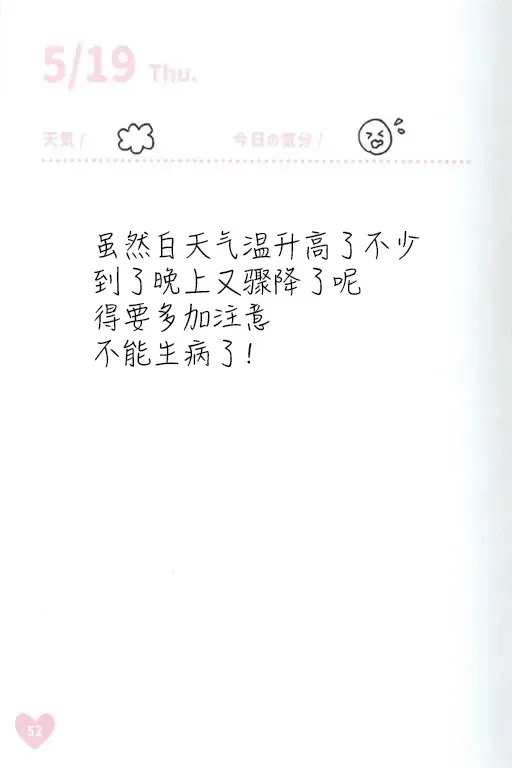 5/19 Thu.
天気/ 今日の気分/
虽然白天气温升高了不少
到了晚上又骤降了呢
得要多加注意
不能生病了!
52